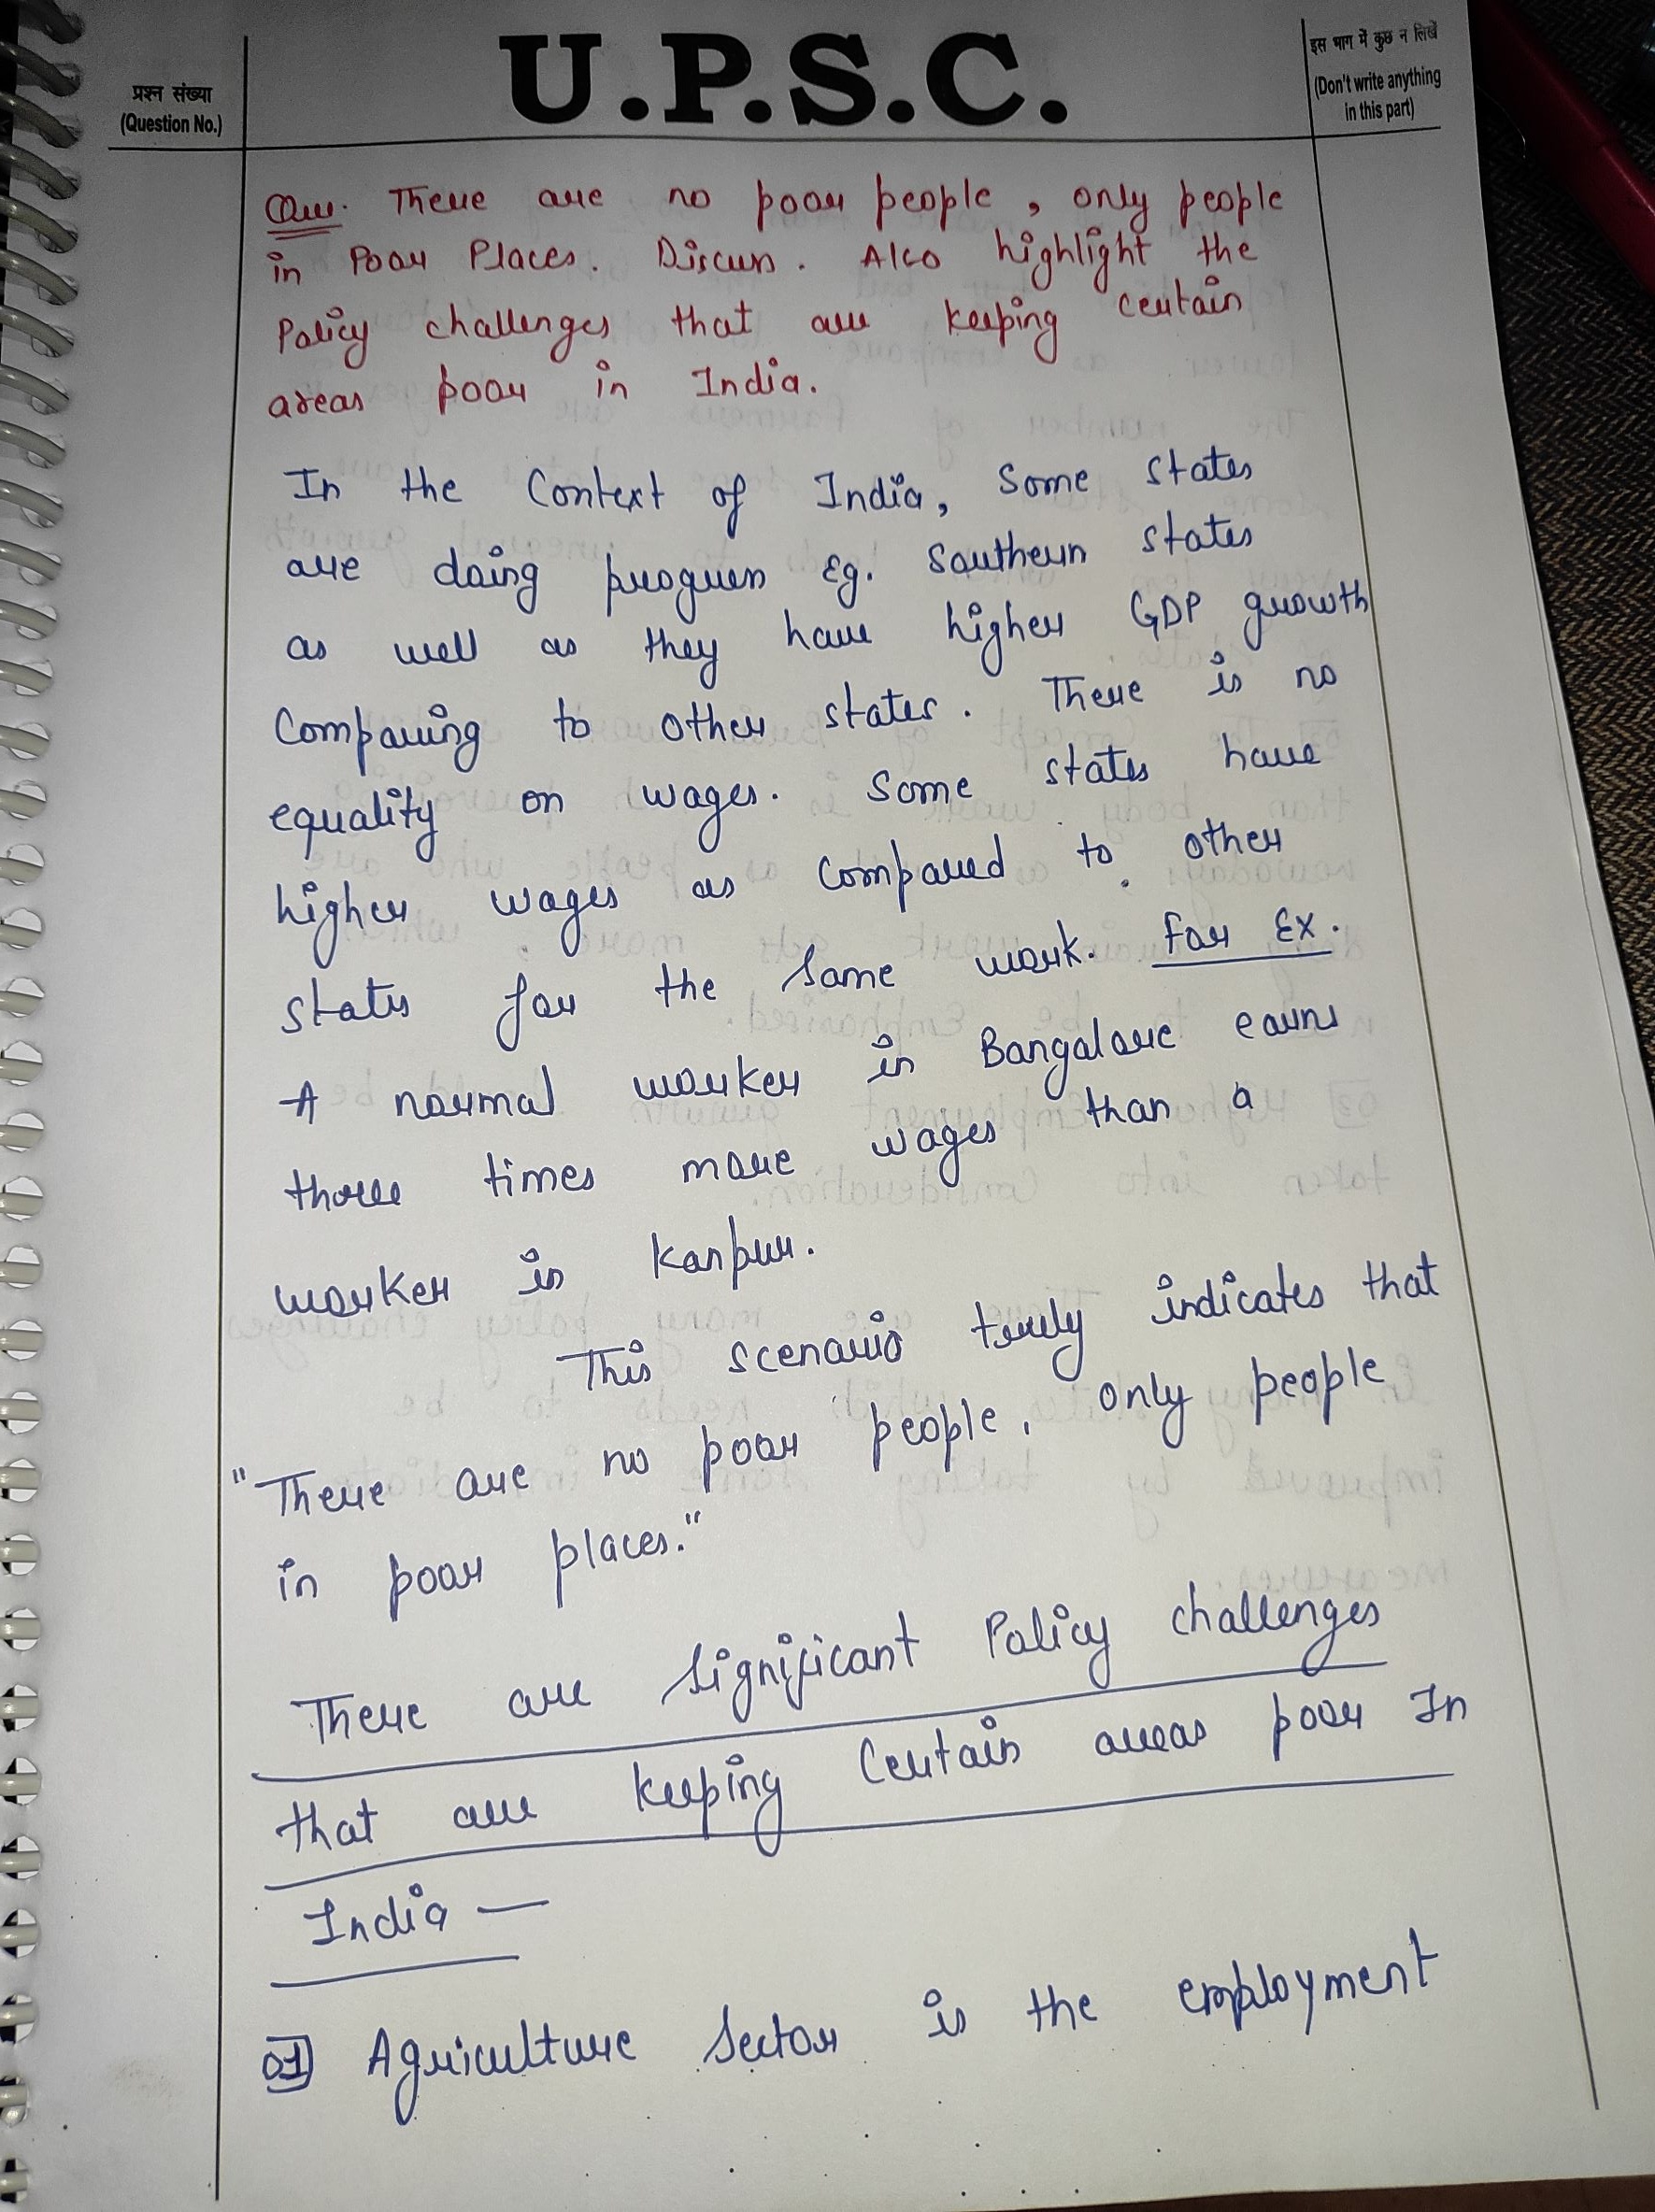 प्रश्न संख्या
(Question No.)
U.P.S.C.
इस भाग में कुछ न लिखें
(Don't write anything
in this part)
Que. There are no poor people, only people
in Poor Places. Discuss. Also highlight the
Policy challenges that are keeping certain
areas poor in India.
In the Context of India, Some states
are doing progress Eg. Southern states
as well as they have higher GDP growth
Comparing to other states. There is no
equality on wages. Some states have
higher wages as compared to other
states for the same work. For Ex.
A normal worker in Bangalore earns
three times more wages than a
worker in Kanpur.
This scenario truly indicates that
"There are no poor people, only people
in poor places."
There are significant Policy challenges
that are keeping Certain areas poor In
India —
01 Agriculture Sector is the employment